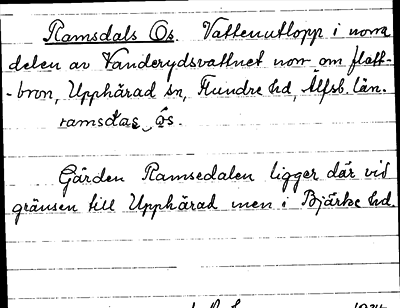 Ramsdals Os. Vattenutlopp i norra
delen av Vanderydsvattnet norr om flatt-
-bron, Upphärad sn, Flundre hd, Älfsb. län.
ramsdas ôs.
Gården Ramsedalen ligger där vid
gränsen till Upphärad men i Bjärke hd.